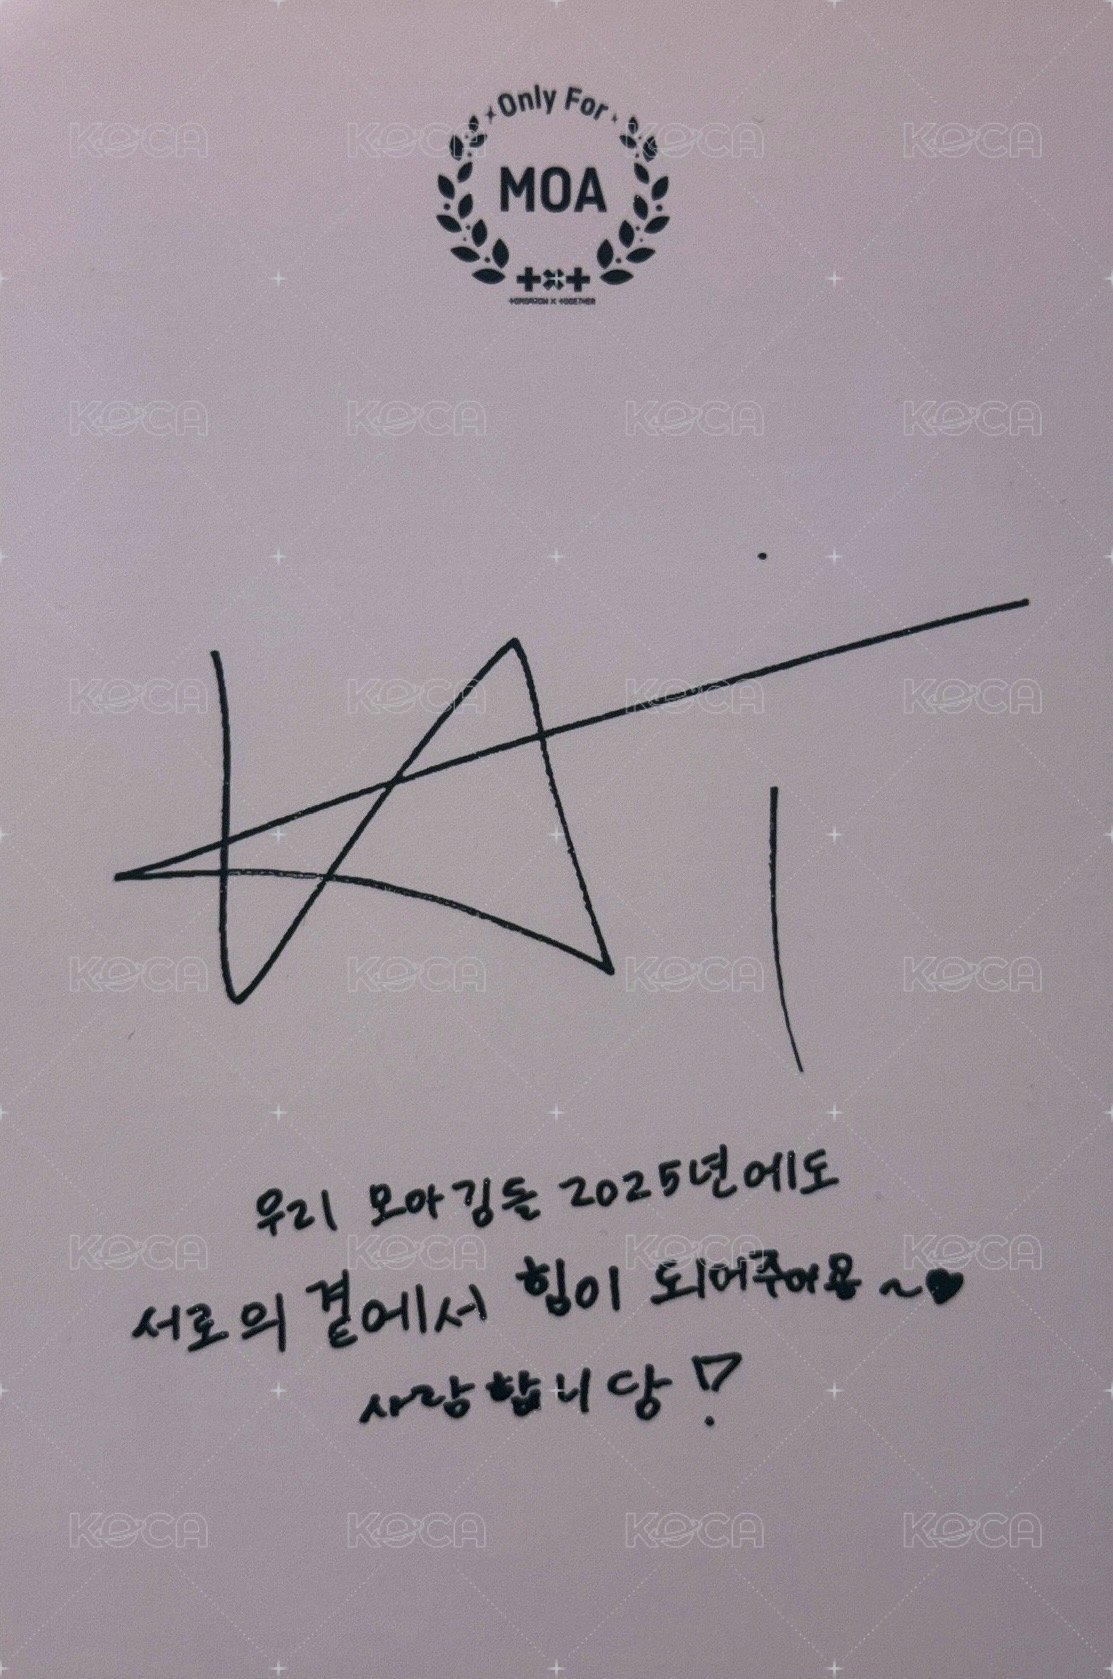 Only For
MOA
TOMORROW X TOGETHER
우리 모아깅들 2025년에도
서로의 곁에서 힘이 되어주아용~♥
사랑합니당!
KOCA